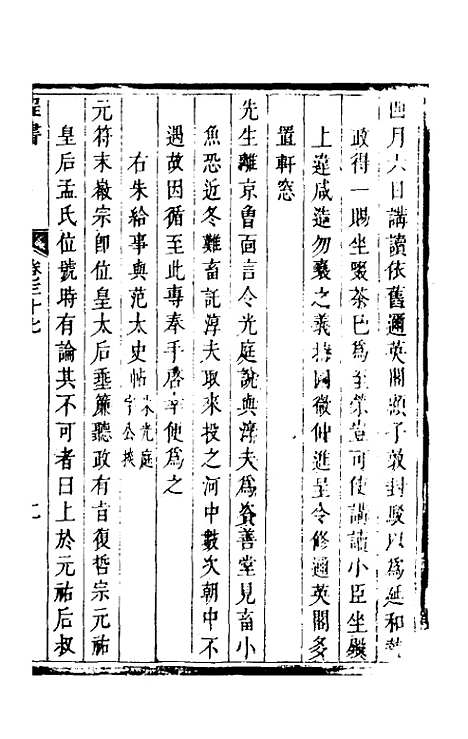 四月六日講讀依舊邇英閣顧子敦封駁以為延和
政得一賜坐啜茶已為至榮豈可使講讀小臣坐殿
上違咸造勿褻之義持國微仲進呈令修邇英閣多
置軒窓
先生離京曾面言令光庭說與淳夫為資善堂見畜小
魚恐近冬難畜託淳夫取來投之河中數次朝中不
遇故因循至此專奉手啓幸便為之
右朱給事與范太史帖朱光庭字公掞
元符末徽宗即位皇太后垂簾聽政有旨復哲宗元祐
皇后孟氏位號時有論其不可者曰上於元祐后叔
程書
卷三十七